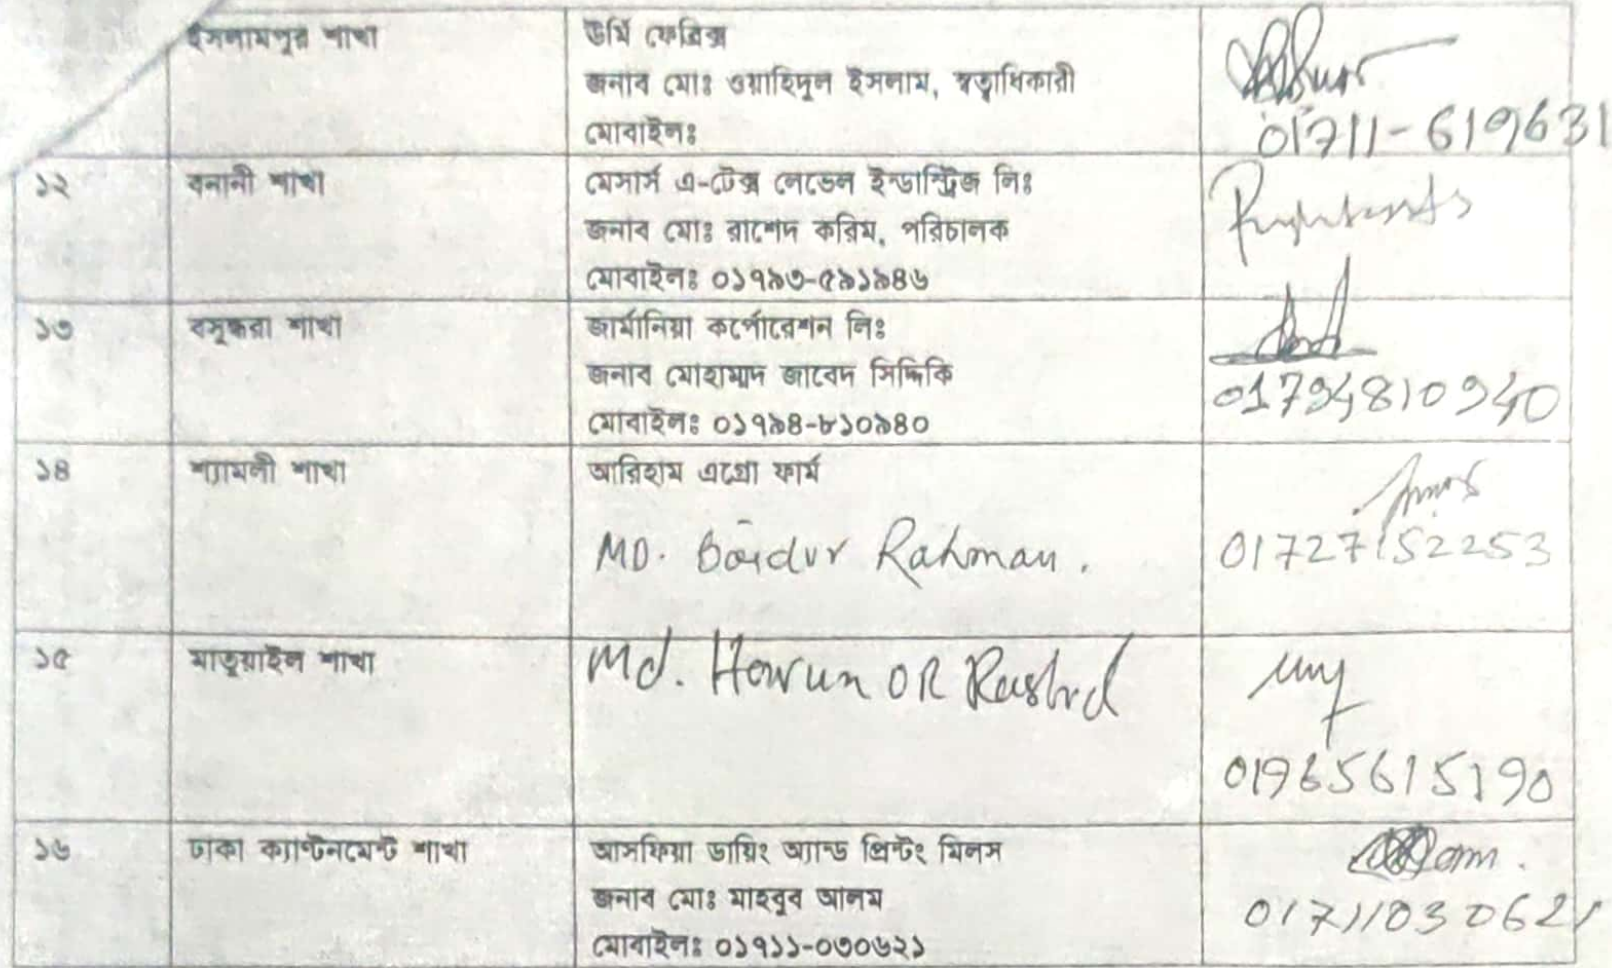 ইসলামপুর শাখা
উর্মি ফেব্রিক্স
জনাব মোঃ ওয়াহিদুল ইসলাম, স্বত্বাধিকারী
মোবাইলঃ
01711-619631
১২
বনানী শাখা
মেসার্স এ-টেক্স লেভেল ইন্ডাস্ট্রিজ লিঃ
জনাব মোঃ রাশেদ করিম, পরিচালক
মোবাইলঃ ০১৭৯৩-৫৯১৯৪৬
১৩
বসুন্ধরা শাখা
জার্মানিয়া কর্পোরেশন লিঃ
জনাব মোহাম্মদ জাবেদ সিদ্দিকি
মোবাইলঃ ০১৭৯৪-৮১০৯৪০
01794810940
১৪
শ্যামলী শাখা
আরিহাম এগ্রো ফার্ম
MD. Rahman.
01727152253
১৫
মাতুয়াইল শাখা
Md. Harun OR Rashid
01965615190
১৬
ঢাকা ক্যান্টনমেন্ট শাখা
আসফিয়া ডায়িং অ্যান্ড প্রিন্টিং মিলস
জনাব মোঃ মাহবুব আলম
মোবাইলঃ ০১৭১১-০৩০৬২১
01711030621